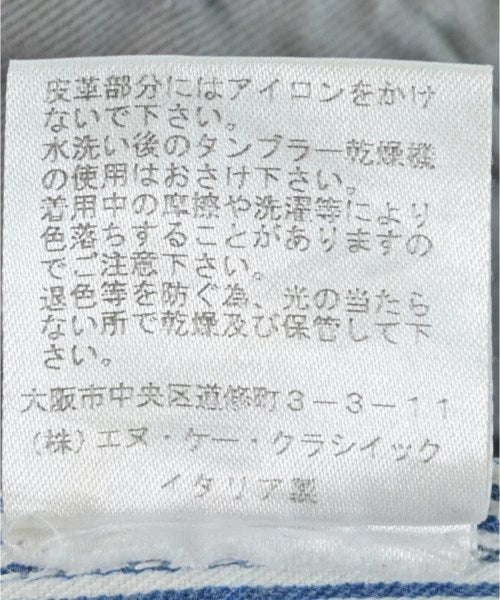 皮革部分にはアイロンをかけ
ないで下さい。
水洗い後のタンブラー乾燥機
の使用はおさけ下さい。
着用中の摩擦や洗濯等により
色落ちすることがありますの
でご注意下さい。
退色等を防ぐ為、光の当たら
ない所で乾燥及び保管して下
さい。
大阪市中央区道修町3-3-11
(株)エヌ・ケー・クラシイック
イタリア製